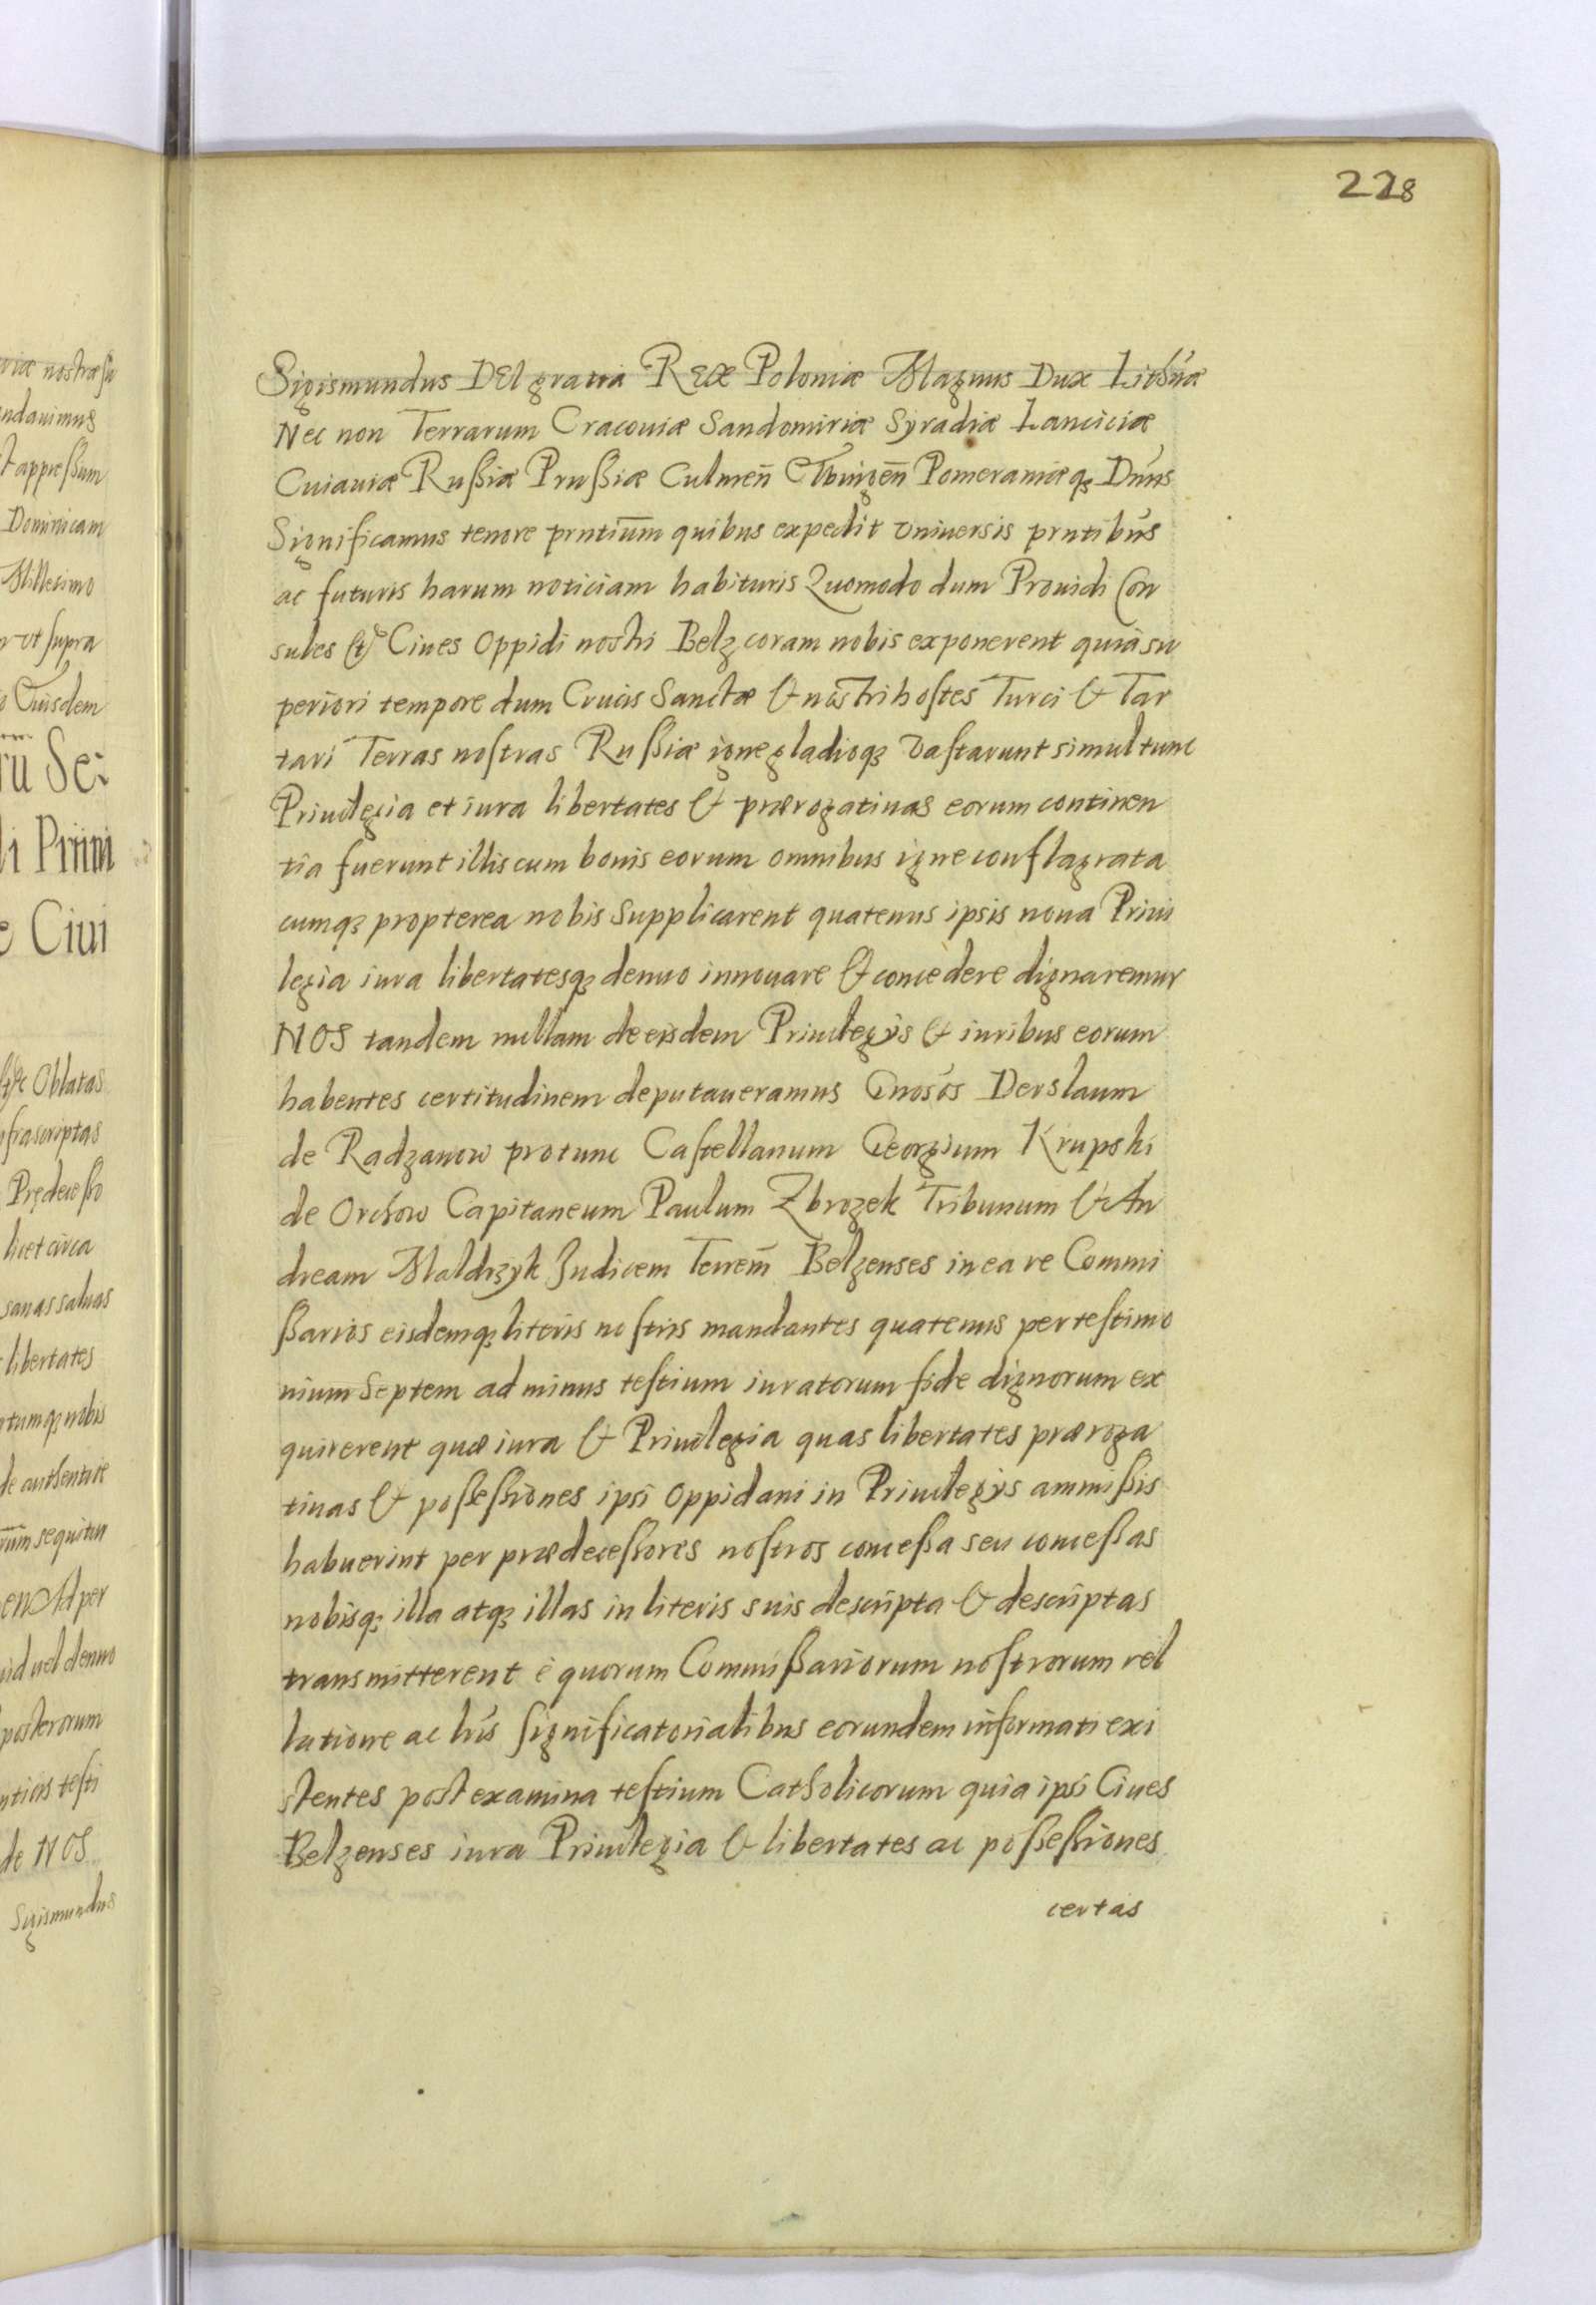 228
Sigismundus DEI gratia Rex Poloniæ Magnus Dux Lithuæ
Nec non Terrarum Cracouiæ Sandomiriæ Syradiæ Lanciciæ
Cuiauiæ Rußiæ Prußiæ Culmen̄ Elbingen̄ Pomeraniæq; Dn̄us
Significamus tenore prntiūm quibus expedit vniuersis prntibus
ac futuris harum noticiam habituris Quomodo dum Prouidi Con
sules et Ciues Oppidi nostri Belz coram nobis exponerent quia su
periori tempore dum Crucis Sanctæ & nostri hostes Turci & Tar
tari Terras nostras Rußiæ igne gladioq; vastarunt simul tunc
Priuilegia et iura libertates & prærogatiuas eorum continen
tia fuerunt illis cum bonis eorum omnibus igne conflagrata
cumq; propterea nobis supplicarent quatenus ipsis noua Priui
legia iura libertatesq; denuo innouare & concedere dignaremur
NOS tandem nullam de eisdem Priuilegijs & iuribus eorum
habentes certitudinem deputaueramus Gnosos Derslaum
de Radzanow protunc Castellanum Georgium Krupski
de Orchow Capitaneum Paulum Zbrozek Tribunum & An
dream Maldrzyk Judicem Terrem̄ Belzenses in ea re Commi
ßarios eisdemq; literis nostris mandantes quatenus per testimo
nium Septem ad minus testium iuratorum fide dignorum ex
quirerent quæ iura & Priuilegia quas libertates præroga
tiuas & poßeßiones ipsi Oppidani in Priuilegijs ammißis
habuerint per prædeceßores nostros conceßa seu conceßas
nobisq; illa atq; illas in literis suis descripta & descriptas
transmitterent è quorum Commißariorum nostrorum rel
latione ac lris significatorialibus eorundem informati exi
stentes post examina testium Catholicorum quia ipsi Ciues
Belzenses iura Priuilegia & libertates ac poßeßiones
certas